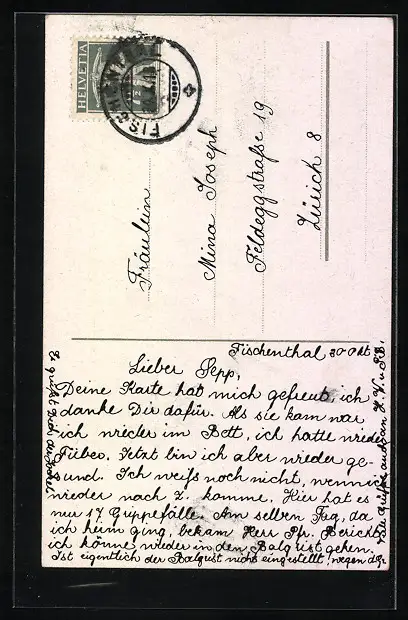 HELVETIA
7½
FISCHENTHAL
Fräulein
Mina Joseph
Feldeggstraße 19
Zürich 8
Fischenthal 30 Okt.
Lieber Sepp,
Deine Karte hat mich gefreut, ich
danke Dir dafür. Als sie kam war
ich wieder im Bett, ich hatte wieder
Fieber. Jetzt bin ich aber wieder ge-
sund. Ich weiß noch nicht, wenn ich
wieder nach Z. komme. Hier hat es
nur 17 Grippefälle. Am selben Tag, da
ich heim ging, bekam Herr Pfr. Bericht,
ich könne wieder in den Balgrist gehen.
Ist eigentlich der Balgrist nicht eingestellt, wegen der